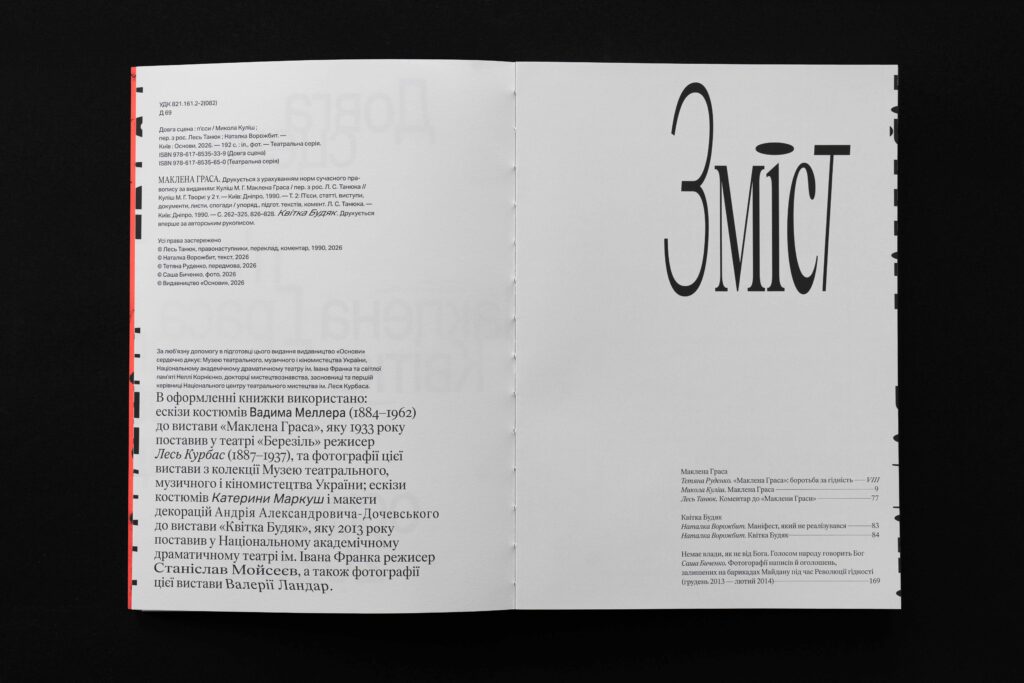 УДК 821.161.2-2(082)
Д 69
Довга сцена : п'єси / Микола Куліш ;
пер. з рос. Лесь Танюк ; Наталка Ворожбит. —
Київ : Основи, 2026. — 192 с. : іл., фот. — Театральна серія.
ISBN 978-617-8535-33-9 (Довга сцена)
ISBN 978-617-8535-65-0 (Театральна серія)
МАКЛЕНА ГРАСА. Друкується з урахуванням норм сучасного пра-
вопису за виданням: Куліш М. Г. Маклена Граса / пер. з рос. Л. С. Танюка //
Куліш М. Г. Твори: у 2 т. — Київ: Дніпро, 1990. — Т. 2: П'єси, статті, виступи,
документи, листи, спогади / упоряд., підгот. текстів, комент. Л. С. Танюка. —
Київ: Дніпро, 1990. — С. 262–325, 826–828. Квітка Будяк. Друкується
вперше за авторським рукописом.
Усі права застережено
© Лесь Танюк, правонаступники, переклад, коментар, 1990, 2026
© Наталка Ворожбит, текст, 2026
© Тетяна Руденко, передмова, 2026
© Саша Биченко, фото, 2026
© Видавництво «Основи», 2026
За люб'язну допомогу в підготовці цього видання видавництво «Основи»
сердечно дякує: Музею театрального, музичного і кіномистецтва України,
Національному академічному драматичному театру ім. Івана Франка та світлої
пам'яті Неллі Корнієнко, докторці мистецтвознавства, засновниці та першій
керівниці Національного центру театрального мистецтва ім. Леся Курбаса.
В оформленні книжки використано:
ескізи костюмів Вадима Меллера (1884–1962)
до вистави «Маклена Граса», яку 1933 року
поставив у театрі «Березіль» режисер
Лесь Курбас (1887–1937), та фотографії цієї
вистави з колекції Музею театрального,
музичного і кіномистецтва України; ескізи
костюмів Катерини Маркуш і макети
декорацій Андрія Александровича-Дочевського
до вистави «Квітка Будяк», яку 2013 року
поставив у Національному академічному
драматичному театрі ім. Івана Франка режисер
Станіслав Мойсеєв, а також фотографії
цієї вистави Валерії Ландар.
Зміст
Маклена Граса
Тетяна Руденко. «Маклена Граса»: боротьба за гідність — VIII
Микола Куліш. Маклена Граса — 9
Лесь Танюк. Коментар до «Маклени Граси» — 77
Квітка Будяк
Наталка Ворожбит. Маніфест, який не реалізувався — 83
Наталка Ворожбит. Квітка Будяк — 84
Немає влади, як не від Бога. Голосом народу говорить Бог
Саша Биченко. Фотографії написів й оголошень,
залишених на барикадах Майдану під час Революції гідності
(грудень 2013 — лютий 2014) — 169